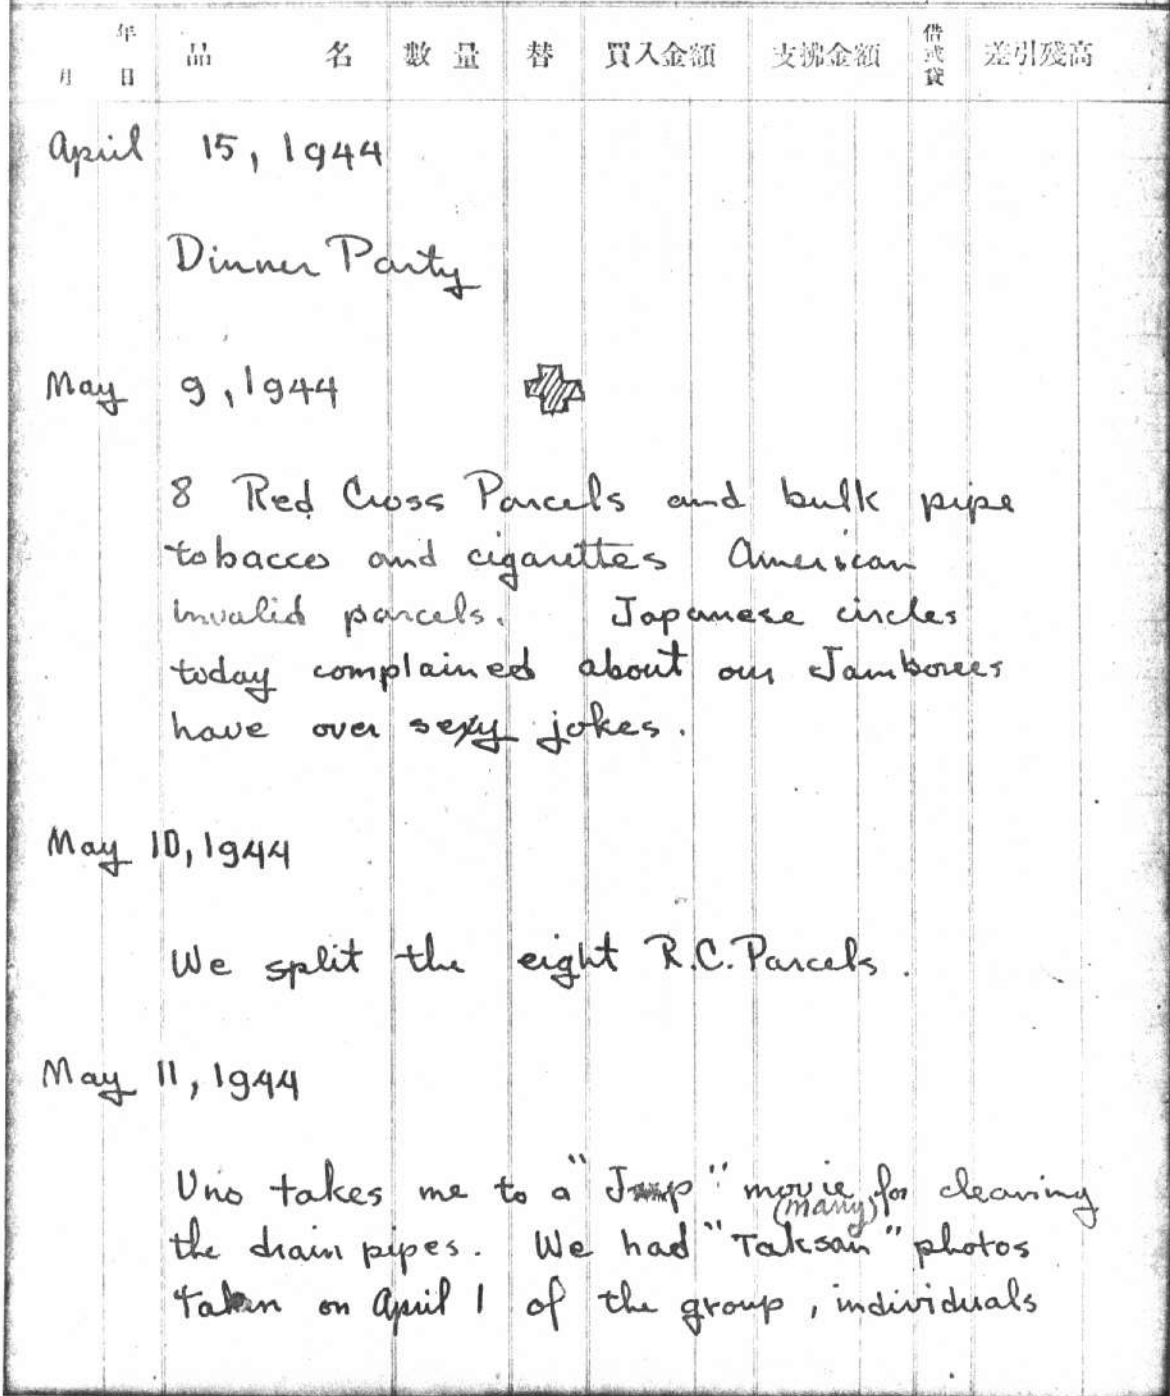 年 品 名 數 量 替 買入金額 支拂金額 借或貸 差引殘高
月 日
April 15, 1944
Dinner Party
May 9, 1944
8 Red Cross Parcels and bulk pipe
tobacco and cigarettes American
invalid parcels. Japanese circles
today complained about our Jamborees
have over sexy jokes.
May 10, 1944
We split the eight R.C. Parcels.
May 11, 1944
Uno takes me to a "Jap" movie for cleaning
(many)
the drain pipes. We had "Taksan" photos
taken on April 1 of the group, individuals